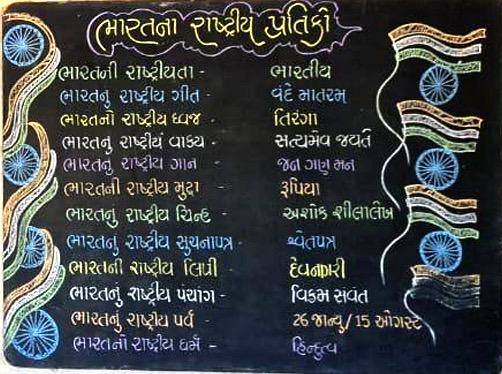 ભારતના રાષ્ટ્રીય પ્રતિકો
ભારતની રાષ્ટ્રીયતા - ભારતીય
ભારતનુ રાષ્ટ્રીય ગીત - વંદે માતરમ
ભારતનો રાષ્ટ્રીય ધ્વજ - તિરંગા
ભારતનુ રાષ્ટ્રીયં વાક્ય - સત્યમેવ જયતે
ભારતનુ રાષ્ટ્રીય ગાન - જન ગણ મન
ભારતની રાષ્ટ્રીય મુદ્રા - રૂપિયા
ભારતનું રાષ્ટ્રીય ચિન્હ - અશોક શીલાલેખ
ભારતનુ રાષ્ટ્રીય સુચનાપત્ર - શ્વેતપત્ર
ભારતની રાષ્ટ્રીય લિપી - દેવનાગરી
ભારતનું રાષ્ટ્રીય પંચાંગ - વિક્રમ સંવત
ભારતનું રાષ્ટ્રીય પર્વ - 26 જાન્યુ/15 ઓગસ્ટ
ભારતનો રાષ્ટ્રીય ધર્મ - હિન્દુત્વ